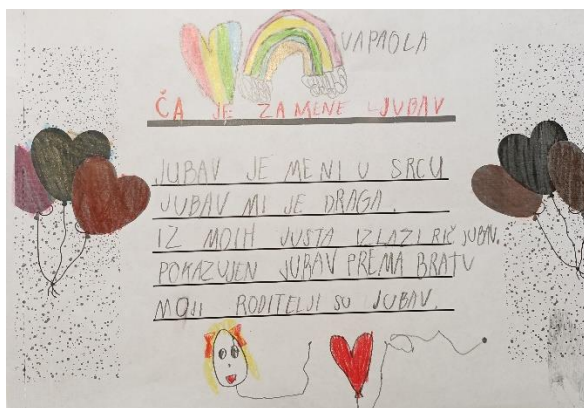 VAPAOLA
ČA JE ZA MENE LJUBAV
JUBAV JE MENI U SRCU
JUBAV MI JE DRAGA.
IZ MOIH JUSTA IZLAZI RIČ JUBAV.
POKAZUJEN JUBAV PREMA BRATU
MOJI RODITELJI SU JUBAV.